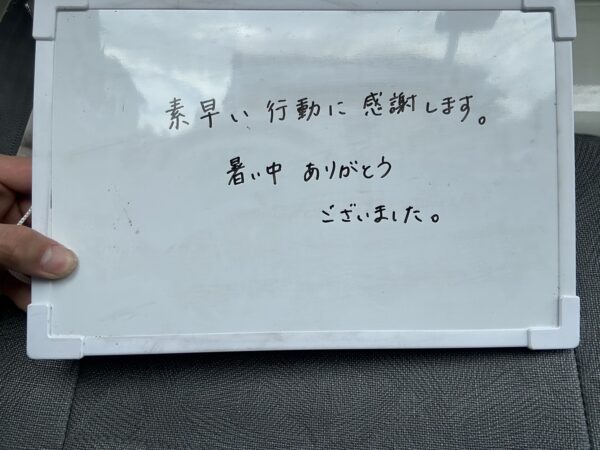 素早い行動に感謝します。
暑い中 ありがとう
ございました。